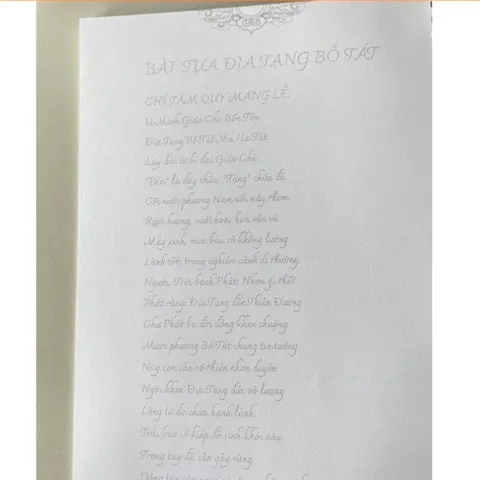 BÀI TỰA ĐỊA TẠNG BỒ TÁT
CHÍ TÂM QUY MẠNG LỄ:
U Minh Giáo Chủ Bổn Tôn
Địa Tạng Bồ Tát Ma Ha Tát
Lạy đức từ bi đại Giáo Chủ
"Địa" là dày chắc, "Tạng" chứa đủ
Cõi nước phương Nam nổi mây thơm
Rưới hương, rưới hoa, hoa vần vũ
Mây xinh, mưa báu số không lường
Lành tốt, trang nghiêm cảnh dị thường
Người, Trời bạch Phật: Nhơn gì thế?
Phật rằng: Địa Tạng đến Thiên Đường
Chư Phật ba đời, đồng khen chuộng
Mười phương Bồ Tát chung tin tưởng
Nay con sẵn có thiện nhơn duyên
Ngợi khen Địa Tạng đức vô lượng
Lòng từ do chứa hạnh lành
Trải bao số kiếp độ sinh khỏi nàn
Trong tay đã sẵn gậy vàng